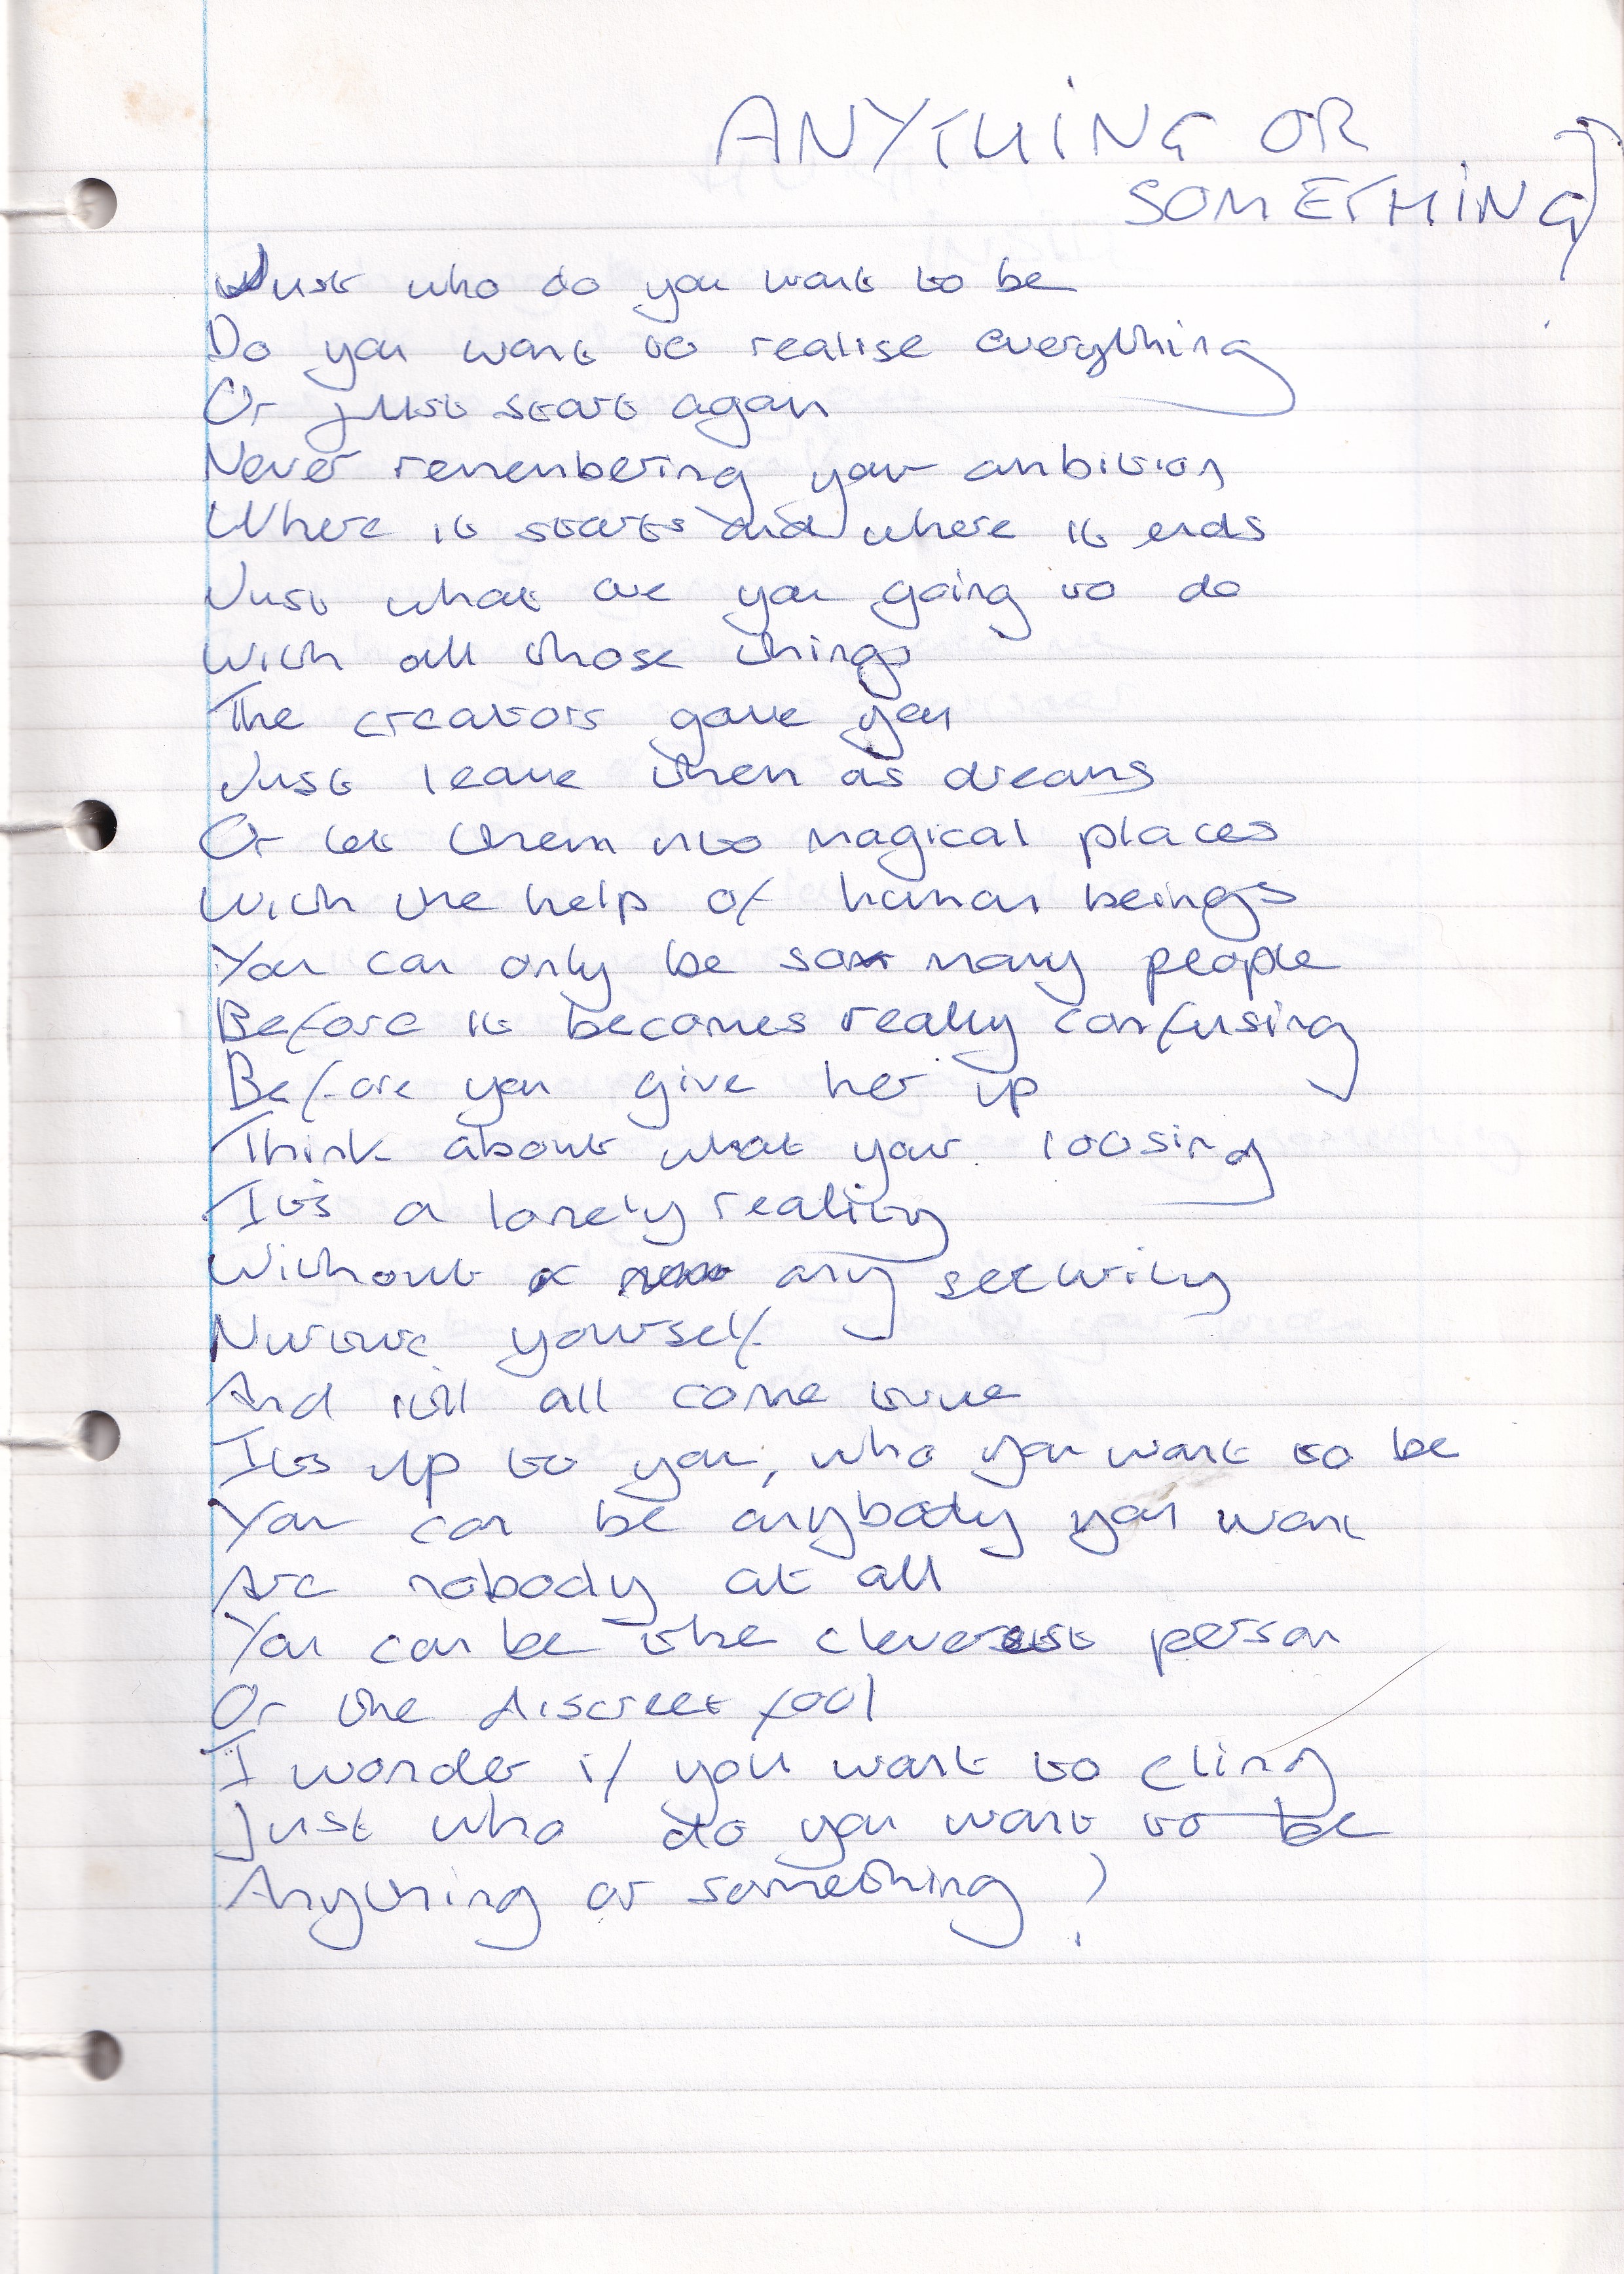 ANYTHING OR
SOMETHING
Just who do you want to be
Do you want to realise everything
Or just start again
Never remembering your ambition
Where it starts and where it ends
Just what are you going to do
With all those things
The creators gave you
Just leave them as dreams
Or let them into magical places
With the help of human beings
You can only be so many people
Before it becomes really confusing
Before you give her up
Think about what your loosing
It's a lonely reality
Without any security
Nurture yourself
And it'll all come true
Its up to you, who you want to be
You can be anybody you want
Are nobody at all
You can be the cleverest person
Or the discreet fool
I wonder if you want to cling
Just who do you want to be
Anything or something?